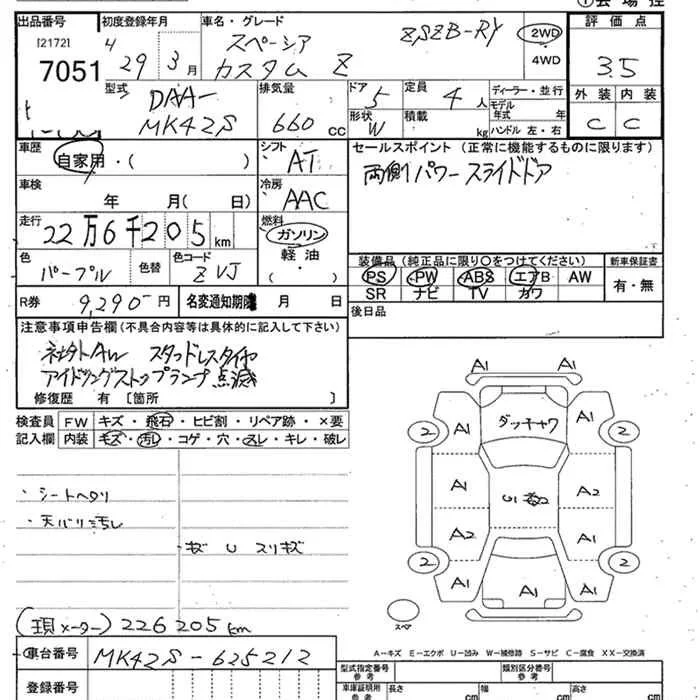 出品番号 初度登録年月 車名・グレード ①会場控
[2172] 4 スペーシア ZSZB-RY 2WD 評価点
7051 29年3月 カスタム Z 4WD 3.5
型式 DAA- 排気量 ドア 5 定員 4人 ディーラー・並行 外装 内装
MK42S 660cc 形状 W 積載 kg モデル年式 年 C C
ハンドル 左・右
車歴 自家用・( ) シフト AT セールスポイント (正常に機能するものに限ります)
車検 年 月( 日) 冷房 AAC 両側パワースライドドア
走行 22万6千205km 燃料 ガソリン
軽油
・( )
色 パープル 色替 色コード ZVJ 装備品(純正品に限り○をつけてください) 新車保証書
PS PW ABS エアB AW 有・無
R券 9,290円 名変通知期限 月 日 SR ナビ TV カワ
注意事項申告欄(不具合内容等は具体的に記入して下さい) 後日品
社外AW スタッドレスタイヤ
アイドリングストップランプ点滅
修復歴 有 [箇所 ]
検査員 FW キズ・飛石・ヒビ割・リペア跡・×要
記入欄 内装 キズ・汚レ・コゲ・穴・スレ・キレ・破レ
・シートヘタリ
・天バリ汚レ
・キズ U スリキズ
A1 A1
A1 ダッチャワ A1
2 2
A1 A2
A2 A1
2 2
A1 A1 A1
A1
スペア
(現メーター) 226205km
A-キズ E-エクボ U-凹み W-補修跡 S-サビ C-腐食 XX-交換済
車台番号 MK42S-625212
型式指定番号 参考 類別区分番号 参考
登録番号 車庫証明用 参考 長さ cm 幅 cm 高さ cm